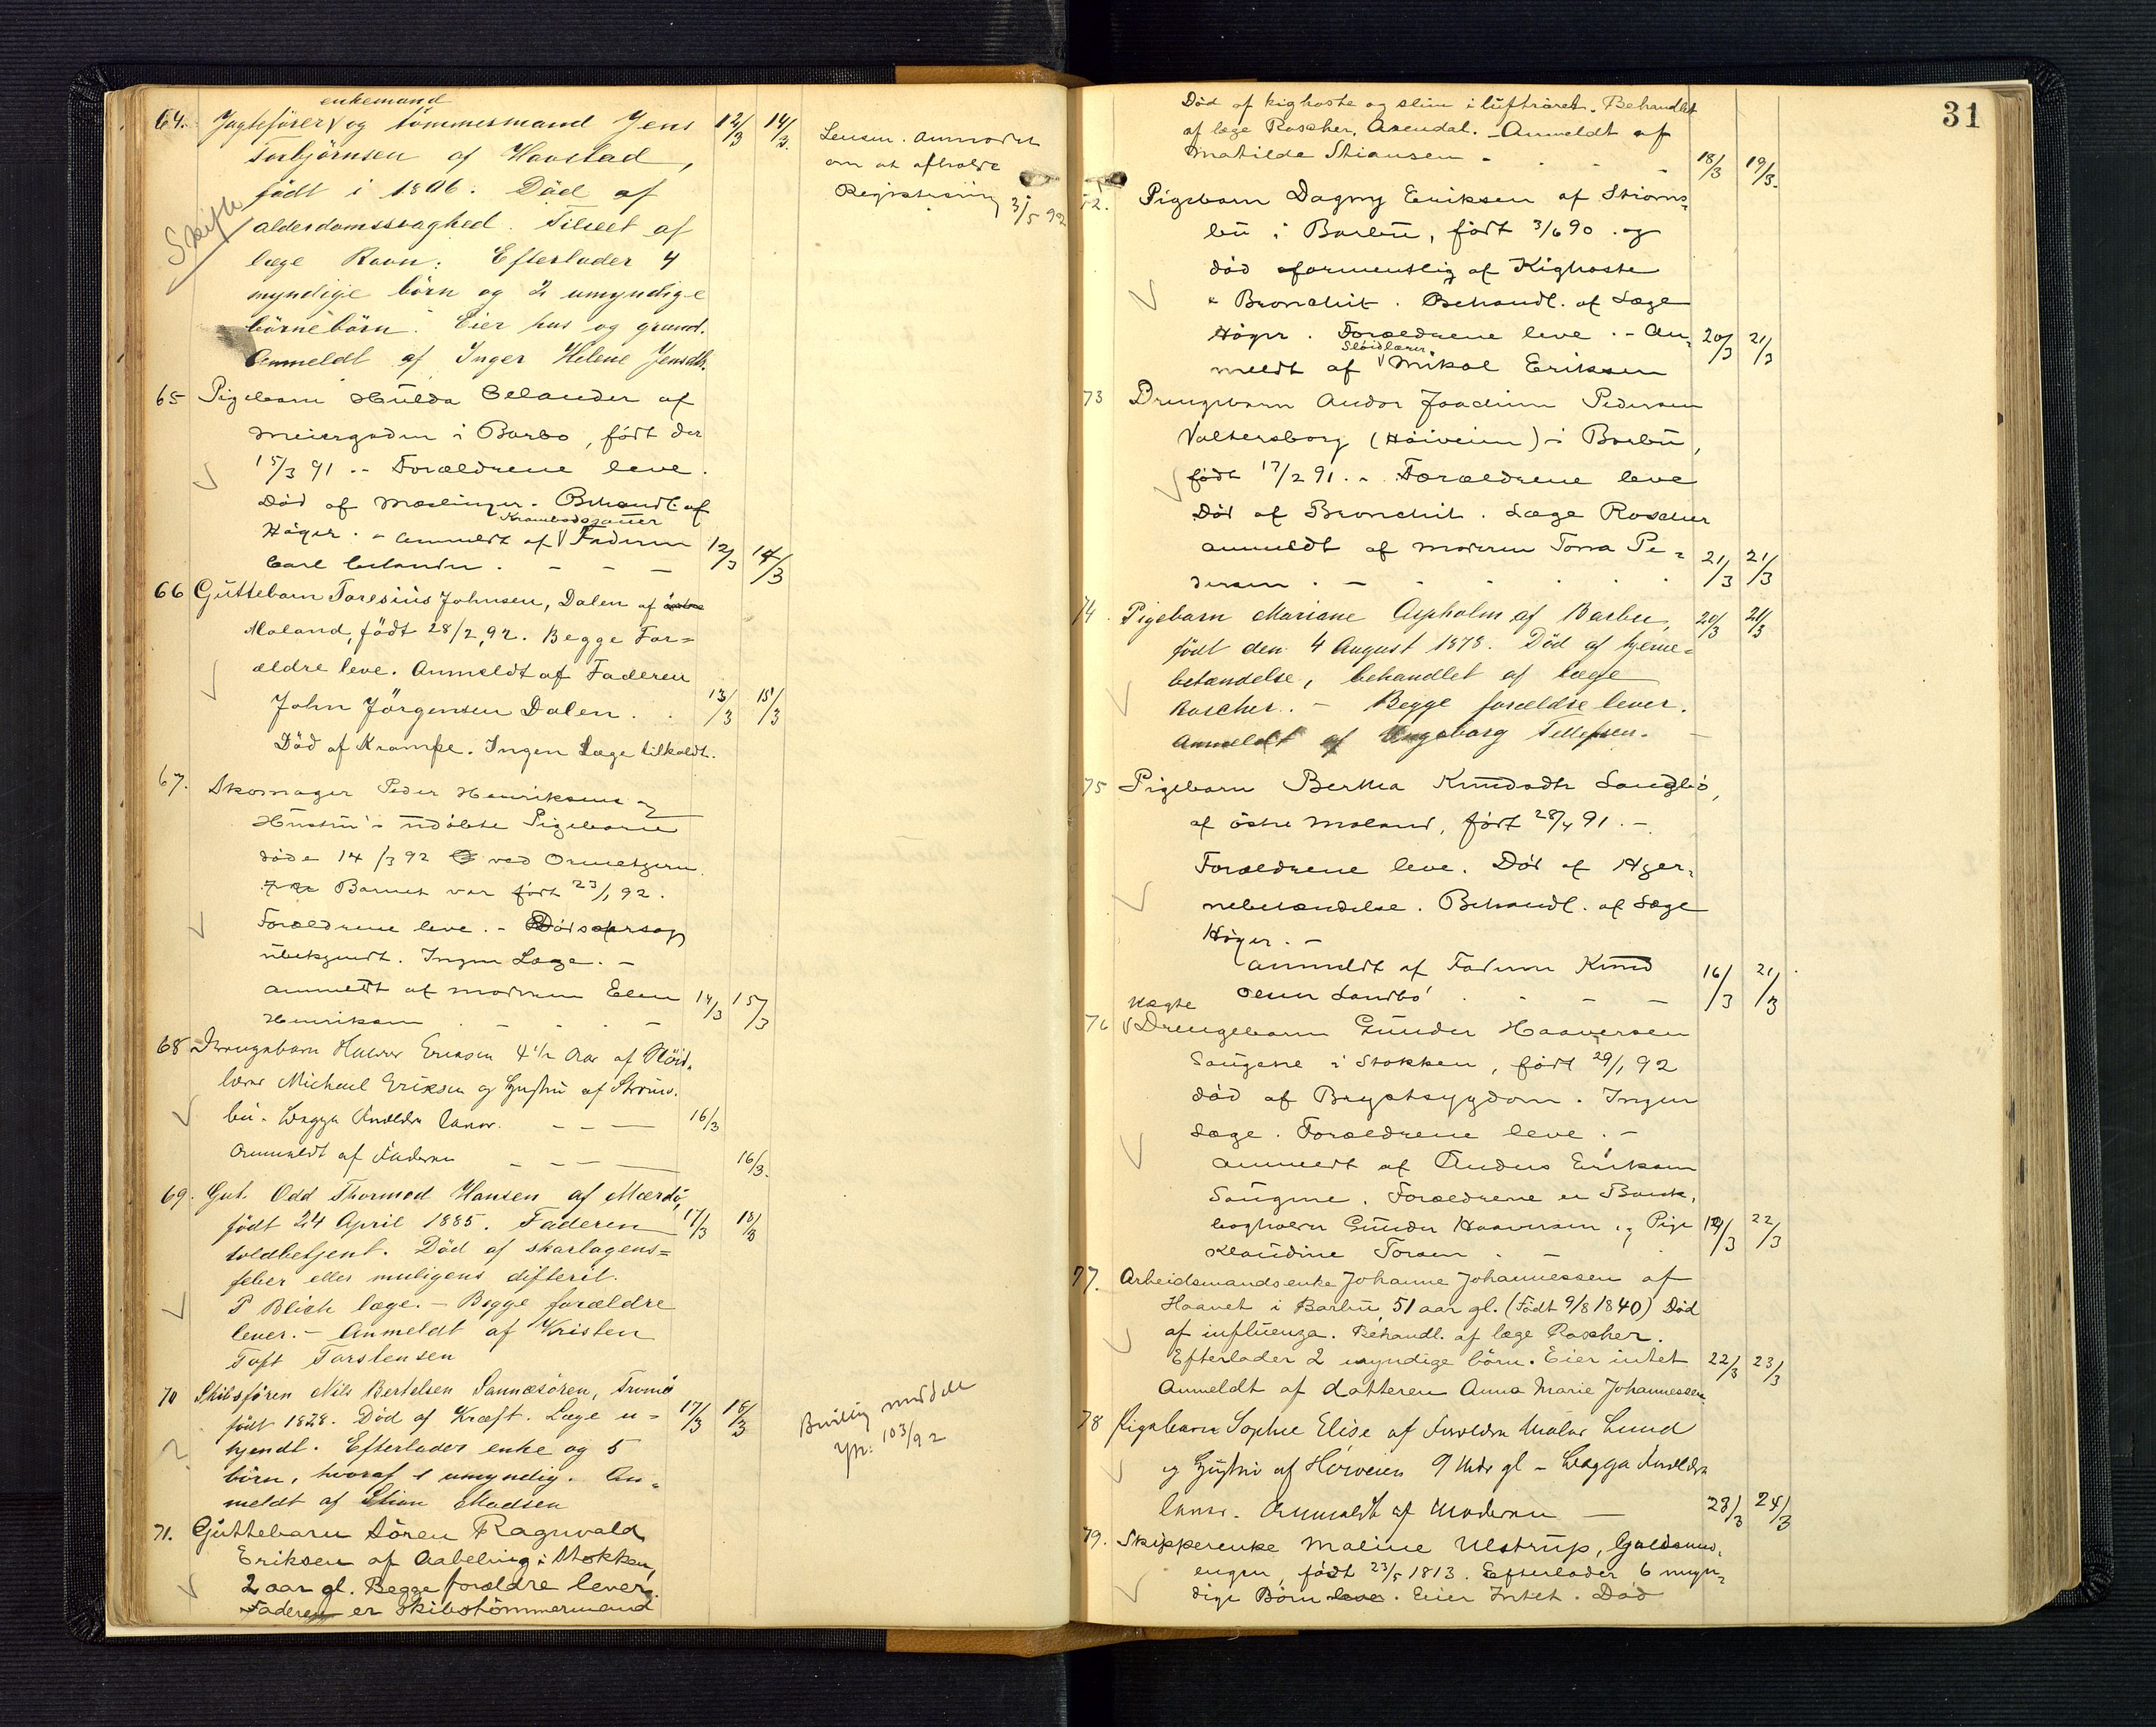 enkemand
64. Jagtefører og tømmermand Jens 12/3 14/3.
Torbjørnsen af Havstad,
født i 1806. Død af
Skifte
alderdomssvaghed. Tilseet af
læge Ravn. Efterlader 4
myndige børn og 2 umyndige
børnebørn. Eier hus og grund.
Anmeldt af Inger Helene Jensdtr.
Lensm. anmodet
om at afholde
Registrering 3/5 92
65 Pigebarn Hulda Celander af
Meiergaden i Barbo, født der
15/3 91 .- Forældrene leve.
Død af Mæslinger. Behandl. af
Krambodsvend
Høyer. - Anmeldt af Faderen
Carl Celander. - - - 12/3 14/3
66 Guttebarn Taresius Johnsen, Dalen af østre
Moland, født 28/2, 92. Begge For=
ældre leve. Anmeldt af Faderen
John Jörgensen Dalen. . 13/3 15/3
Död af Krampe. Ingen Læge tilkaldt.
67. Skomager Peder Henriksens og
Hustru's udøbte Pigebarn
døde 14/3 92 ved Ormetjern.
Barnet var født 23/1 92.
Forældrene leve. - Dødsaarsag
ubekjendt. Ingen Læge. -
anmeldt af moderen Elen 14/3 15/3
Henriksen . - . . -
68 Drengebarn Halvor Eriksen 4 1/2 Aar af Sløid.
lærer Michael Eriksen og Hustru af Strøms.
bu. Begge Forældre lever. - - - 16/3
Anmeldt af Faderen - - - 16/3.
69. Gut. Odd Thormod Hansen af Mærdö,
født 24 April 1885. Faderen 17/3 18/3
toldbetjent. Död af skarlagens=
feber eller muligens difterit.
P Blich læge. - Begge forældre
lever. - Anmeldt af Kristen
Toft Torstensen
70 Skibsfören Nils Bertelsen Sannesören, Tromö
født 1828. Död af Kræft. Læge u= 17/3 18/3
kjendt. Efterlader enke og 5
börn, hvoraf 1 umyndig. An=
meldt af Stian Madsen
Bevillig meddelt
103/92
71. Guttebarn Sören Ragnvald
Eriksen af Aabelvig i Stokken,
2 aar gl. Begge forældre lever.
Faderen er skibstömmermand
31
Död af kighoste og slim i luftröret. Behandlet
af læge Roscher, Arendal. - Anmeldt af
Matilde Stiansen - - - 18/3 19/3.
72. Pigebarn Dagny Eriksen af Strøms=
bu i Barbu, født 3/6 90. og
død formentlig af Kighoste
& Bronchit. Behandl. af Læge
Høyer. Forældrene leve .- An= 20/3 21/3
Sløidlærer
meldt af Mikal Eriksen
73 Drengebarn Andor Joachim Pedersen
Valtersborg (Höiveien) i Barbu,
født 17/2 91. - Forældrene leve
Død af Bronchit. Læge Roscher
anmeldt af moderen Tora Pe=
dersen . - - . . . 21/3 21/3
74. Pigebarn Mariane Aspholm af Barbu, 20/3 21/3
født den 4 August 1878. Død af hjerne=
betændelse, behandlet af læge
Roscher. - Begge forældre lever.
Anmeldt af Ingeborg Tellefsen. -
75 Pigebarn Bertha Knudsdtr Landbø,
af østre Moland, født 28/4 91. -
Forældrene leve. Død af Hjer=
nebetændelse. Behandl. af Læge
Høyer. -
anmeldt af Faderen Knud
Olsen Landbø . - - - 16/3 21/3
Uægte
76 Drengebarn Gunder Haaversen
Saugene i Stokken, født 29/1 92
død af Brystsygdom. Ingen
Læge. Forældrene leve. -
anmeldt af Anders Eriksen
Saugene. Forældrene er Bank,
bogholder Gunder Haaversen og Pige 19/3 22/3
Klaudine Torsen . -
77. Arbeidsmandsenke Johanne Johannessen af
Haavet i Barbu, 51 aar gl. (Født 9/8 1840) Död
af influenza. Behandl. af læge Roscher.
Efterlader 2 myndige börn. Eier intet 22/3 23/3
Anmeldt af datteren Anna Marie Johannessen
78 Pigebarn Sophie Elise af Forældre Maler Lund
og Hustru af Höiveien 9 Mdr gl - Begge Forældre
lever. Anmeldt af Moderen - 23/3 24/3
79. Skipperenke Maline Ulstrup, Guldsmed.
engen, født 23/5 1813. Efterlader 6 myn=
dige Børn leve. Eier Intet. Død